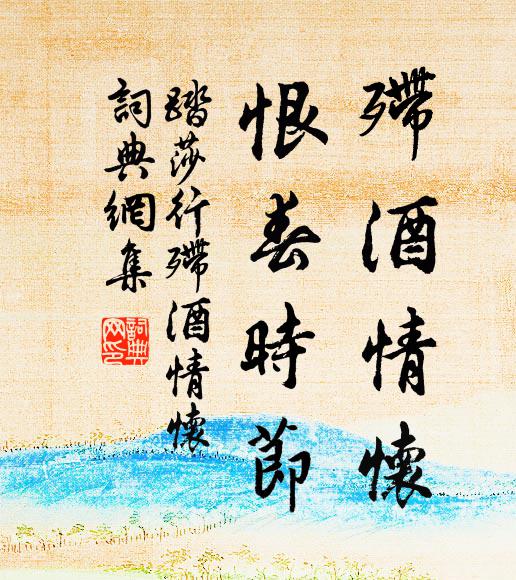 殢酒情懷
恨春時節
踏莎行殢酒情懷
詞典網集
詞典
网印